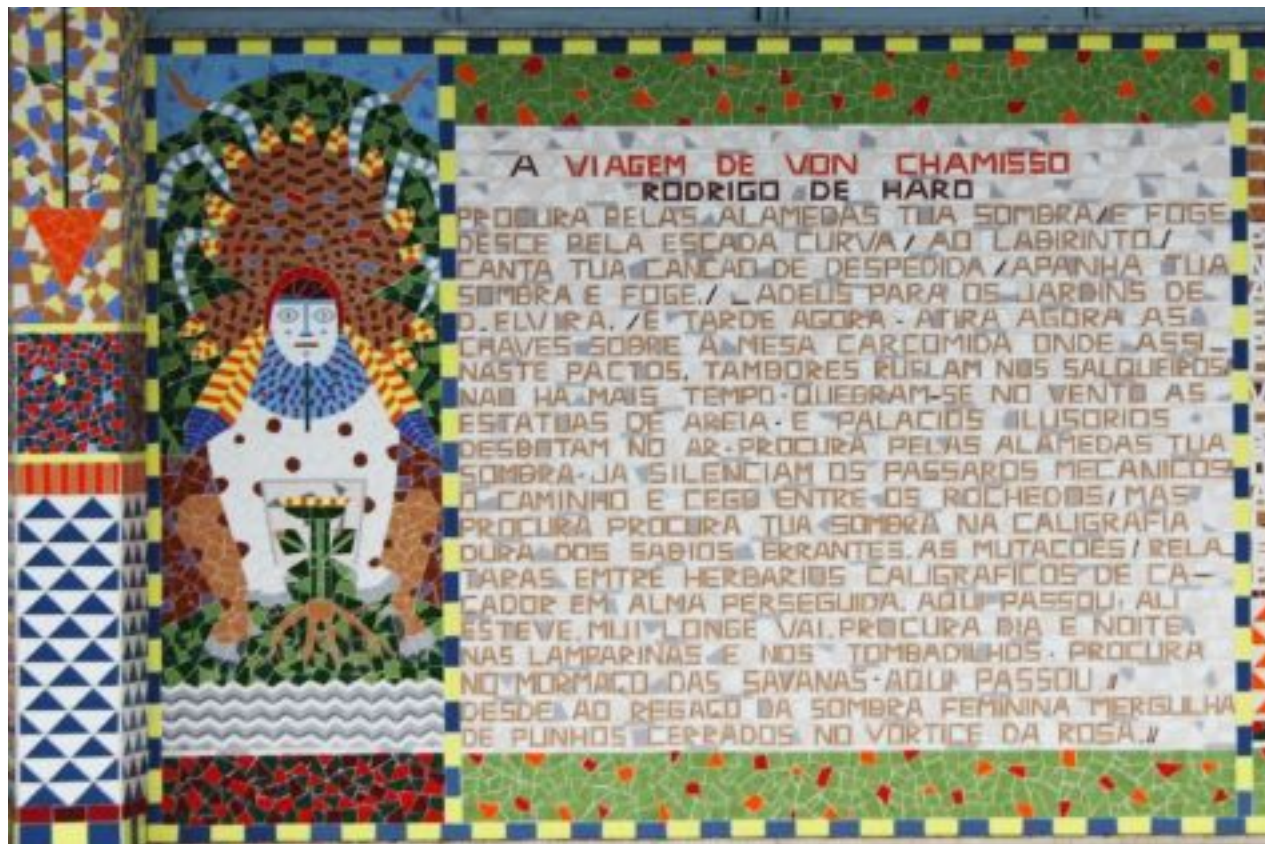 A VIAGEM DE VON CHAMISSO
RODRIGO DE HARO
PROCURA PELAS ALAMEDAS TUA SOMBRA/E FOGE
DESCE PELA ESCADA CURVA/ AO LABIRINTO/
CANTA TUA CANCAO DE DESPEDIDA /APANHA TUA
SOMBRA E FOGE./ _ADEUS PARA OS JARDINS DE
D. ELVIRA. /E TARDE AGORA - ATIRA AGORA AS
CHAVES SOBRE A MESA CARCOMIDA ONDE ASSI_
NASTE PACTOS. TAMBORES RUFLAM NOS SALGUEIROS
NAO HA MAIS TEMPO-QUEBRAM-SE NO VENTO AS
ESTATUAS DE AREIA-E PALACIOS ILUSORIOS
DESBOTAM NO AR-PROCURA PELAS ALAMEDAS TUA
SOMBRA-JA SILENCIAM OS PASSAROS MECANICOS
O CAMINHO E CEGO ENTRE OS ROCHEDOS/MAS
PROCURA PROCURA TUA SOMBRA NA CALIGRAFIA
DURA DOS SABIOS ERRANTES. AS MUTACOES/RELA_
TADAS EMTRE HERBARIOS CALIGRAFICOS DE CA-
CADOR EM ALMA PERSEGUIDA. AQUI PASSOU. ALI
ESTEVE. MUI LONGE VAI. PROCURA DIA E NOITE
NAS LAMPARINAS E NOS TOMBADILHOS. PROCURA
NO MORMACO DAS SAVANAS-AQUI PASSOU //
DESDE AO REGACO DA SOMBRA FEMININA MERGULHA
DE PUNHOS CERRADOS NO VORTICE DA ROSA.//